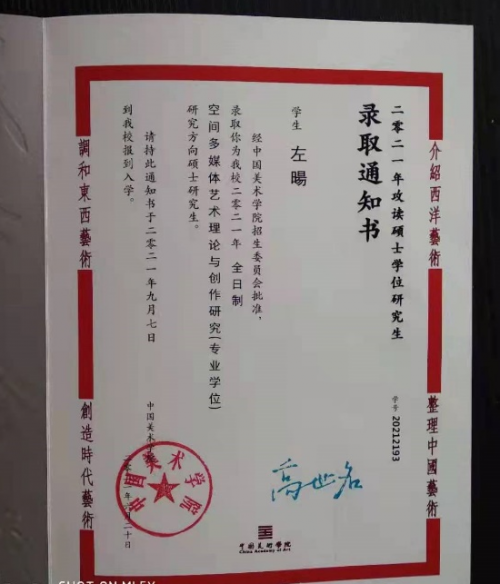 介紹西洋藝術
整理中國藝術
調和東西藝術
創造時代藝術
二零二一年攻读硕士学位研究生
录取通知书
学号 20212193
学生 左暘
经中国美术学院招生委员会批准，
录取你为我校二零二一年 全日制
空间多媒体艺术理论与创作研究(专业学位)
研究方向硕士研究生。
请持此通知书于二零二一年九月七日
到我校报到入学。
中国美术学院
中国美术学院
高世名
中国美術学院
China Academy of Art
SHOT ON MI